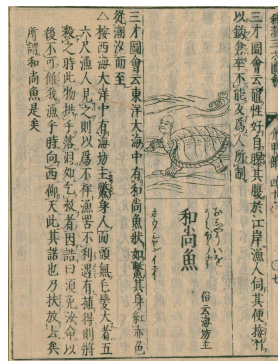 三才圖會云黿性好自曝其腹於江岸漁人伺其便接竹
以鈎倉卒不能久爲人所制
和尚魚
俗云海坊主
三才圖會云東洋大海中有和尚魚狀如鱉其身紅赤色
從潮汐而至
△按西海大洋中有海坊主鱉身人面頭無毛髮大者五
六尺漁人見之則以爲不祥漁罟不利遇有捕得則將
殺之時此物拱手落淚如乞救者因誥曰須免汝命以
後不可敵我漁乎時向西仰天此其諾也乃扶放去矣
所謂和尚魚是矣